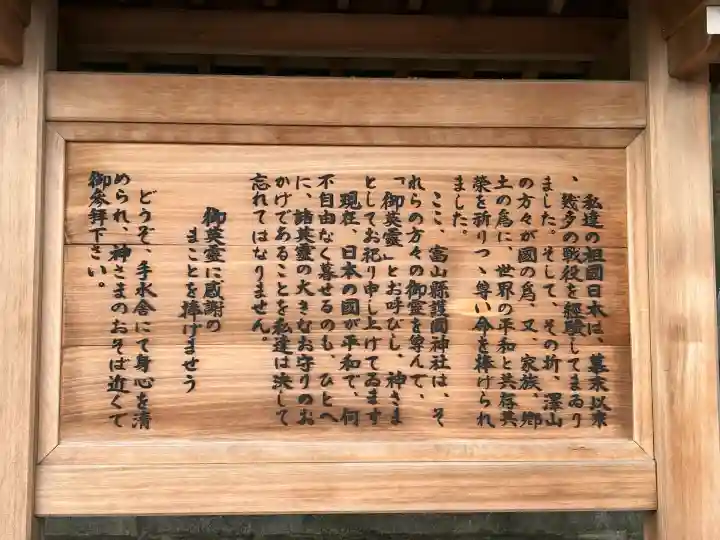 私達の祖國日本は、幕末以来
、幾多の戦役を經驗してまゐり
ました。そして、その折、澤山
の方々が國の為、又、家族、郷
土の為に、世界の平和と共存共
榮を祈りつゝ尊い命を捧げられ
ました。
ここ、富山縣護國神社は、そ
れらの方々の御霊を尊んで、
「御英霊」とお呼びし、神さま
としてお祀り申し上げてゐます
現在、日本の國が平和で、何
不自由なく暮せるのも、ひとへ
に、諸英霊の大きなお守りのお
かげであることを私達は決して
忘れてはなりません。
御英霊に感謝の
まことを捧げませう
どうぞ、手水舎にて身心を清
められ、神さまのおそば近くて
御参拝下さい。